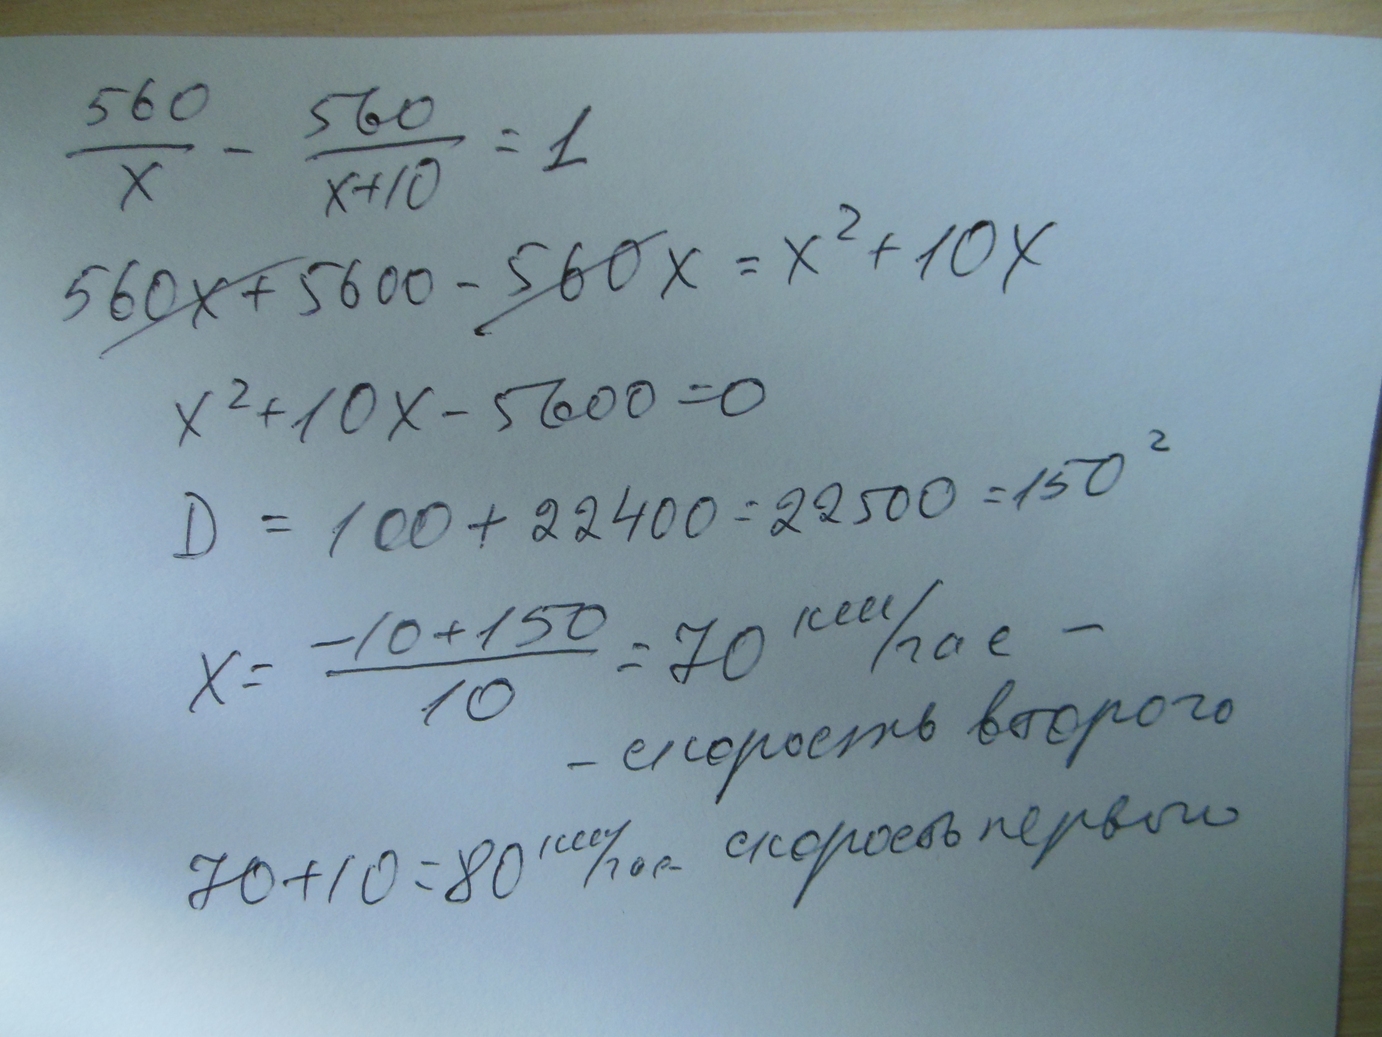 560/x - 560/(x+10) = 1
560x + 5600 - 560x = x² + 10x
x² + 10x - 5600 = 0
D = 100 + 22400 = 22500 = 150²
x = (-10+150)/10 = 70 км/час -
- скорость второго
70+10=80 км/час - скорость первого